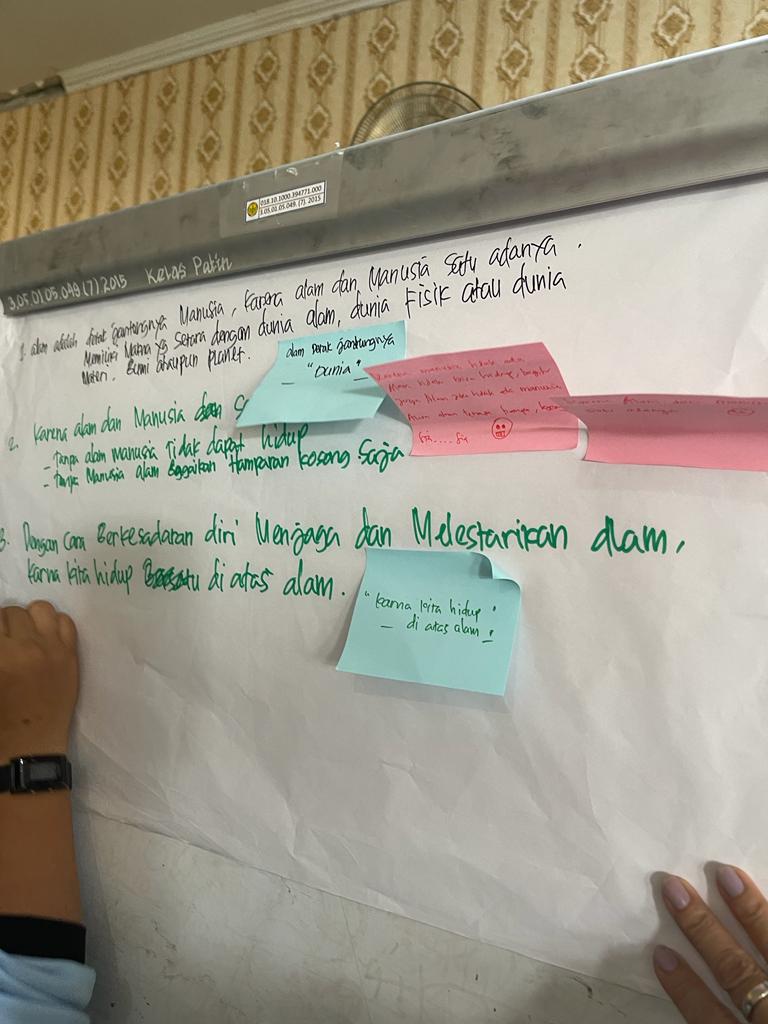 018.10.1000.394771.000
3.05.01.05.049. (7). 2015
3.05.01.05.049 (7) 2015 Kelas Patin
1. alam adalah detak jantungnya Manusia, Karena alam dan Manusia satu adanya.
Memiliki Makna yg Setara dengan dunia alam, dunia Fisik atau dunia
Materi, Bumi ataupun planet.
alam Detak jantungnya
"Dunia"
2. Karena alam dan Manusia
- Tanpa alam manusia Tidak dapat hidup
- Tanpa Manusia alam Bagaikan Hamparan kosong Saja
Karena manusia tidak ada
Alam tidak bisa hidup, begitu
juga Alam jika tidak ada manusia
Alam dan hanya
satu adanya
3. Dengan Cara Berkesadaran diri Menjaga dan Melestarikan alam,
Karna kita hidup di atas alam.
"Karna kita hidup"
di atas alam